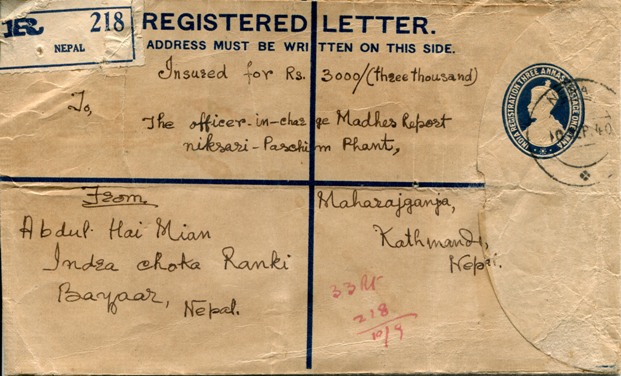 R 218
NEPAL
REGISTERED LETTER.
ADDRESS MUST BE WRITTEN ON THIS SIDE.
Insured for Rs. 3000/(three thousand)
To,
The officer-in-charge Madhes Report
niksari-Paschim Phant,
Maharajganja,
Kathmandu,
Nepal.
From
Abdul Hai Mian
Indra choka Ranki
Bazaar, Nepal.
INDIA REGISTRATION THREE ANNAS POSTAGE ONE ANNA
218
10/9